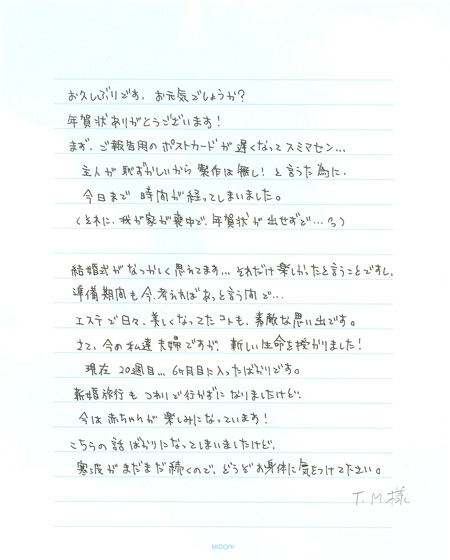 お久しぶりです。お元気でしょうか?
年賀状ありがとうございます!
まず、ご報告用のポストカードが遅くなってスミマセン…
主人が恥ずかしいから製作は無し!と言うた為に、
今日まで時間が経ってしまいました。
(それに、我が家が喪中で、年賀状が出せずで…
結婚式がなつかしく思えてます…それだけ楽しかったと言うことですし、
準備期間も今、考えればあっと言う間で…
エステで日々、美しくなってたコトも、素敵な思い出です。
さて、今の私達夫婦ですが、新しい生命を授かりました!
現在20週目…6ヶ月目に入ったばかりです。
新婚旅行も つわりで行かずになりましたけど、
今は赤ちゃんが楽しみになっています!
こちらの話ばかりになってしまいましたけど、
寒波がまだまだ続くので、どうぞお身体に気をつけて下さい。
T.M様
MIDORI